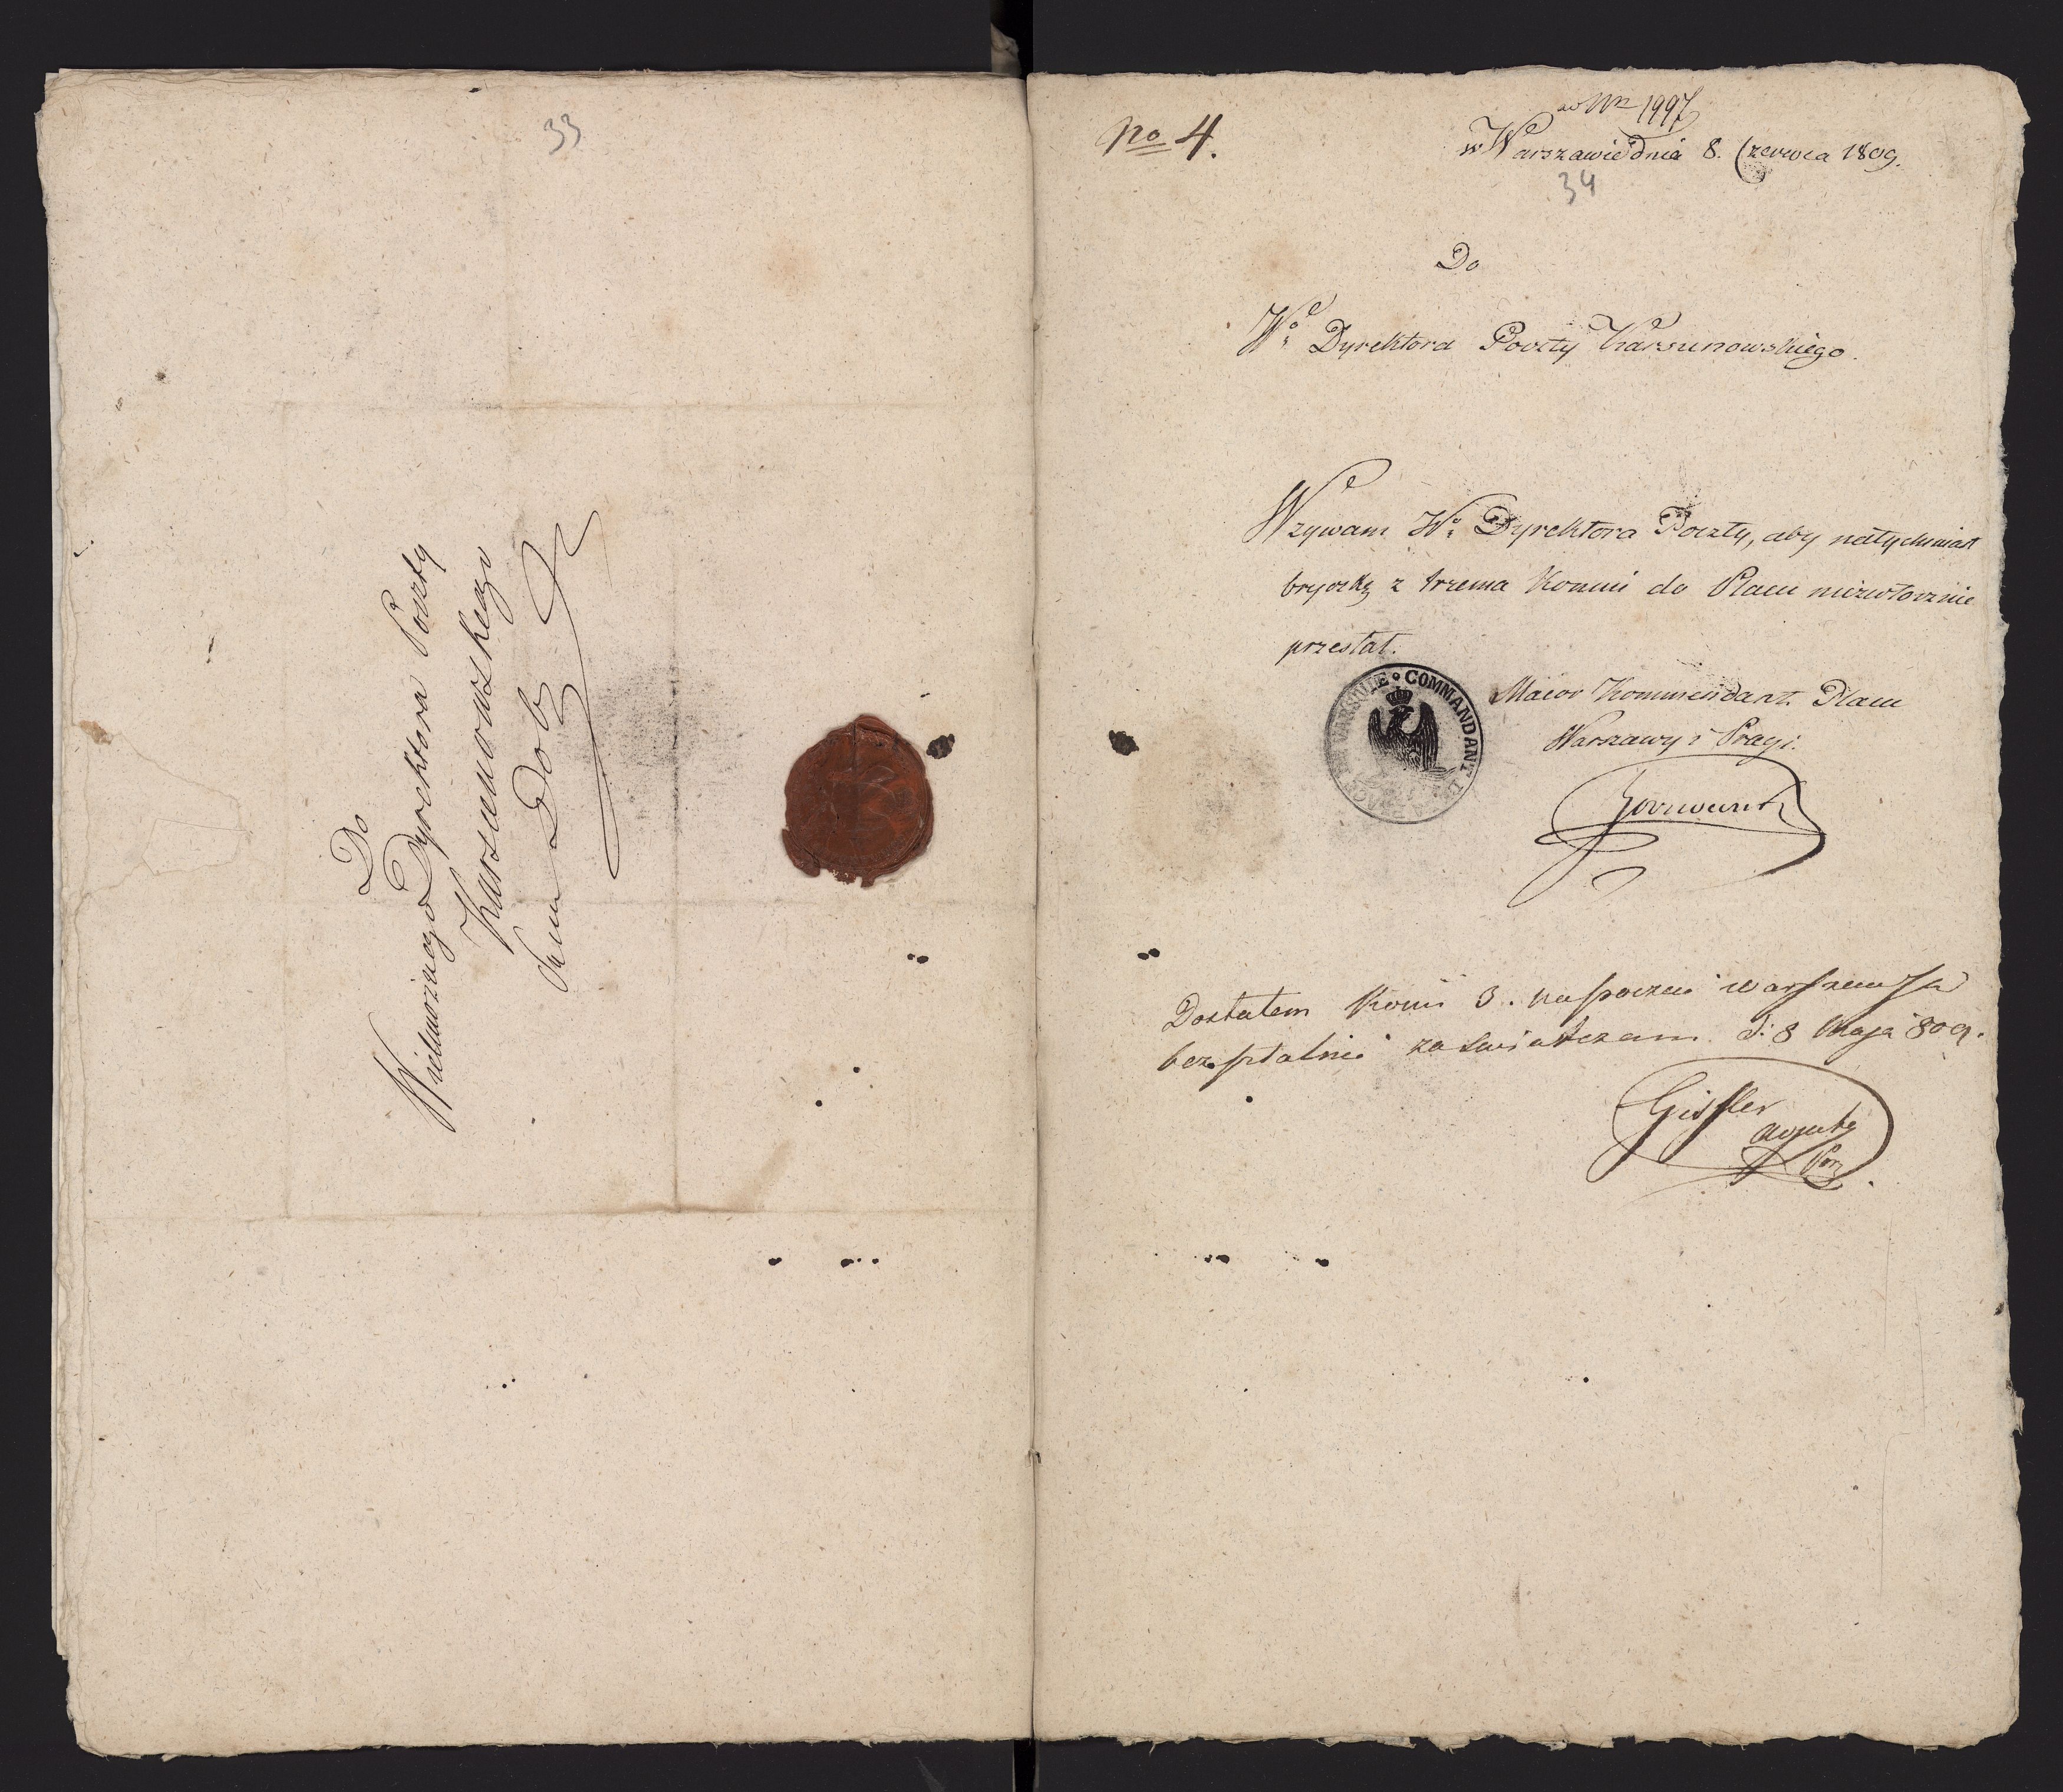 33
Do
Wielmożnego Dyrektora Poczty
Karsunowskego
Sum Dob
No 4.
ad Nm 1997
w Warszawie dnia 8. Czerwca 1809.
34
Do
Wo. Dyrektora Poczty Karsunowskiego.
Wzywam Wo. Dyrektora Poczty, aby natychmiast
bryczkę z trzema Konmi do Placu niezwłocznie
przesłał.
COMMANDANT DE LA PLACE DE VARSOVIE
Maior Kommendant Placu
Warszawy i Pragi.
Dostałem Koni 3. na poczcie warszawski
bezpłatnie zaświadczam. d: 8 Maja 809.
Gissler